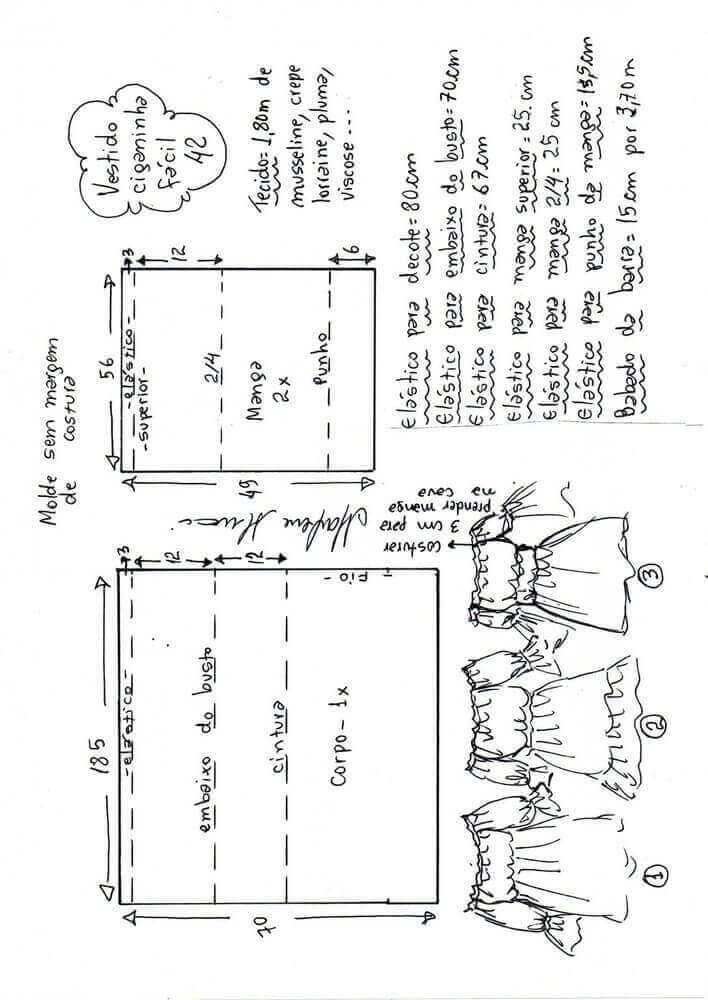 Molde sem margem
de costura
Vestido
ciganinha
fácil
42
Tecido= 1,80m de
musseline, crepe
lorraine, pluma,
viscose...
185
70
3
-elástico-
12
embaixo do busto
12
cintura
Corpo-1x
-Fio-
56
49
3
-elástico-
-superior-
12
2/4
Manga
2x
Punho
6
costurar
3 cm para
prender manga
na cava
1
2
3
Elástico para decote=80cm
Elástico para embaixo do busto=70cm
Elástico para cintura=67cm
Elástico para manga superior=25cm
Elástico para manga 2/4=25cm
Elástico para punho da manga=18,5cm
Babado da barra=15cm por 3,70m